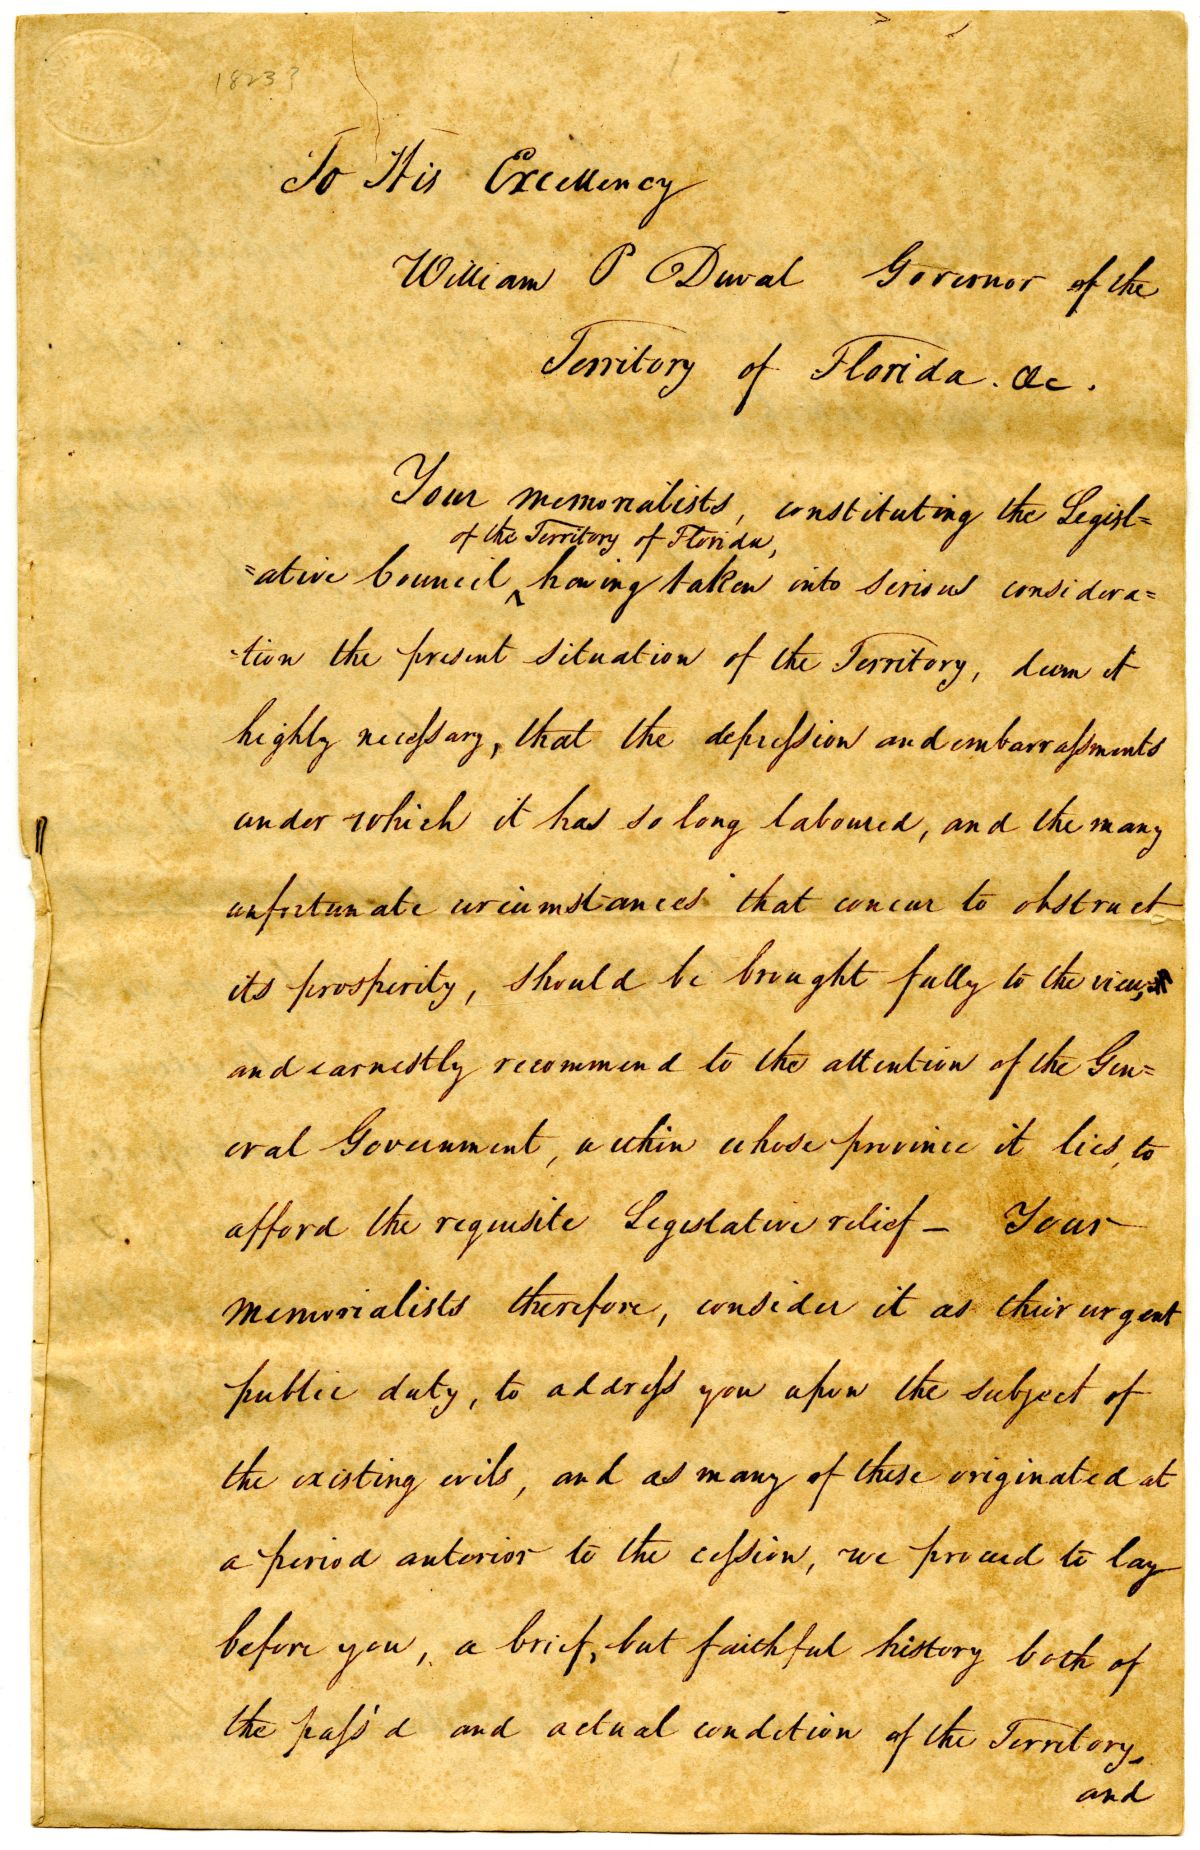 1823?
To His Excellency
William P Duval Governor of the
Territory of Florida. &c.
Your memorialists, constituting the Legisl=
of the Territory of Florida,
=ative Council ‸ having taken into serious considera=
=tion the present situation of the Territory, deem it
highly necessary, that the depression and embarrassments
under which it has so long laboured, and the many
unfortunate circumstances that concur to obstruct
its prosperity, should be brought fully to the view,
and earnestly recommend to the attention of the Gen=
eral Government, within whose province it lies, to
afford the requisite Legislative relief — Your
memorialists therefore, consider it as their urgent
public duty, to address you upon the subject of
the existing evils, and as many of these originated at
a period anterior to the cession, we proceed to lay
before you, a brief, but faithful history both of
the pass'd and actual condition of the Territory,
and